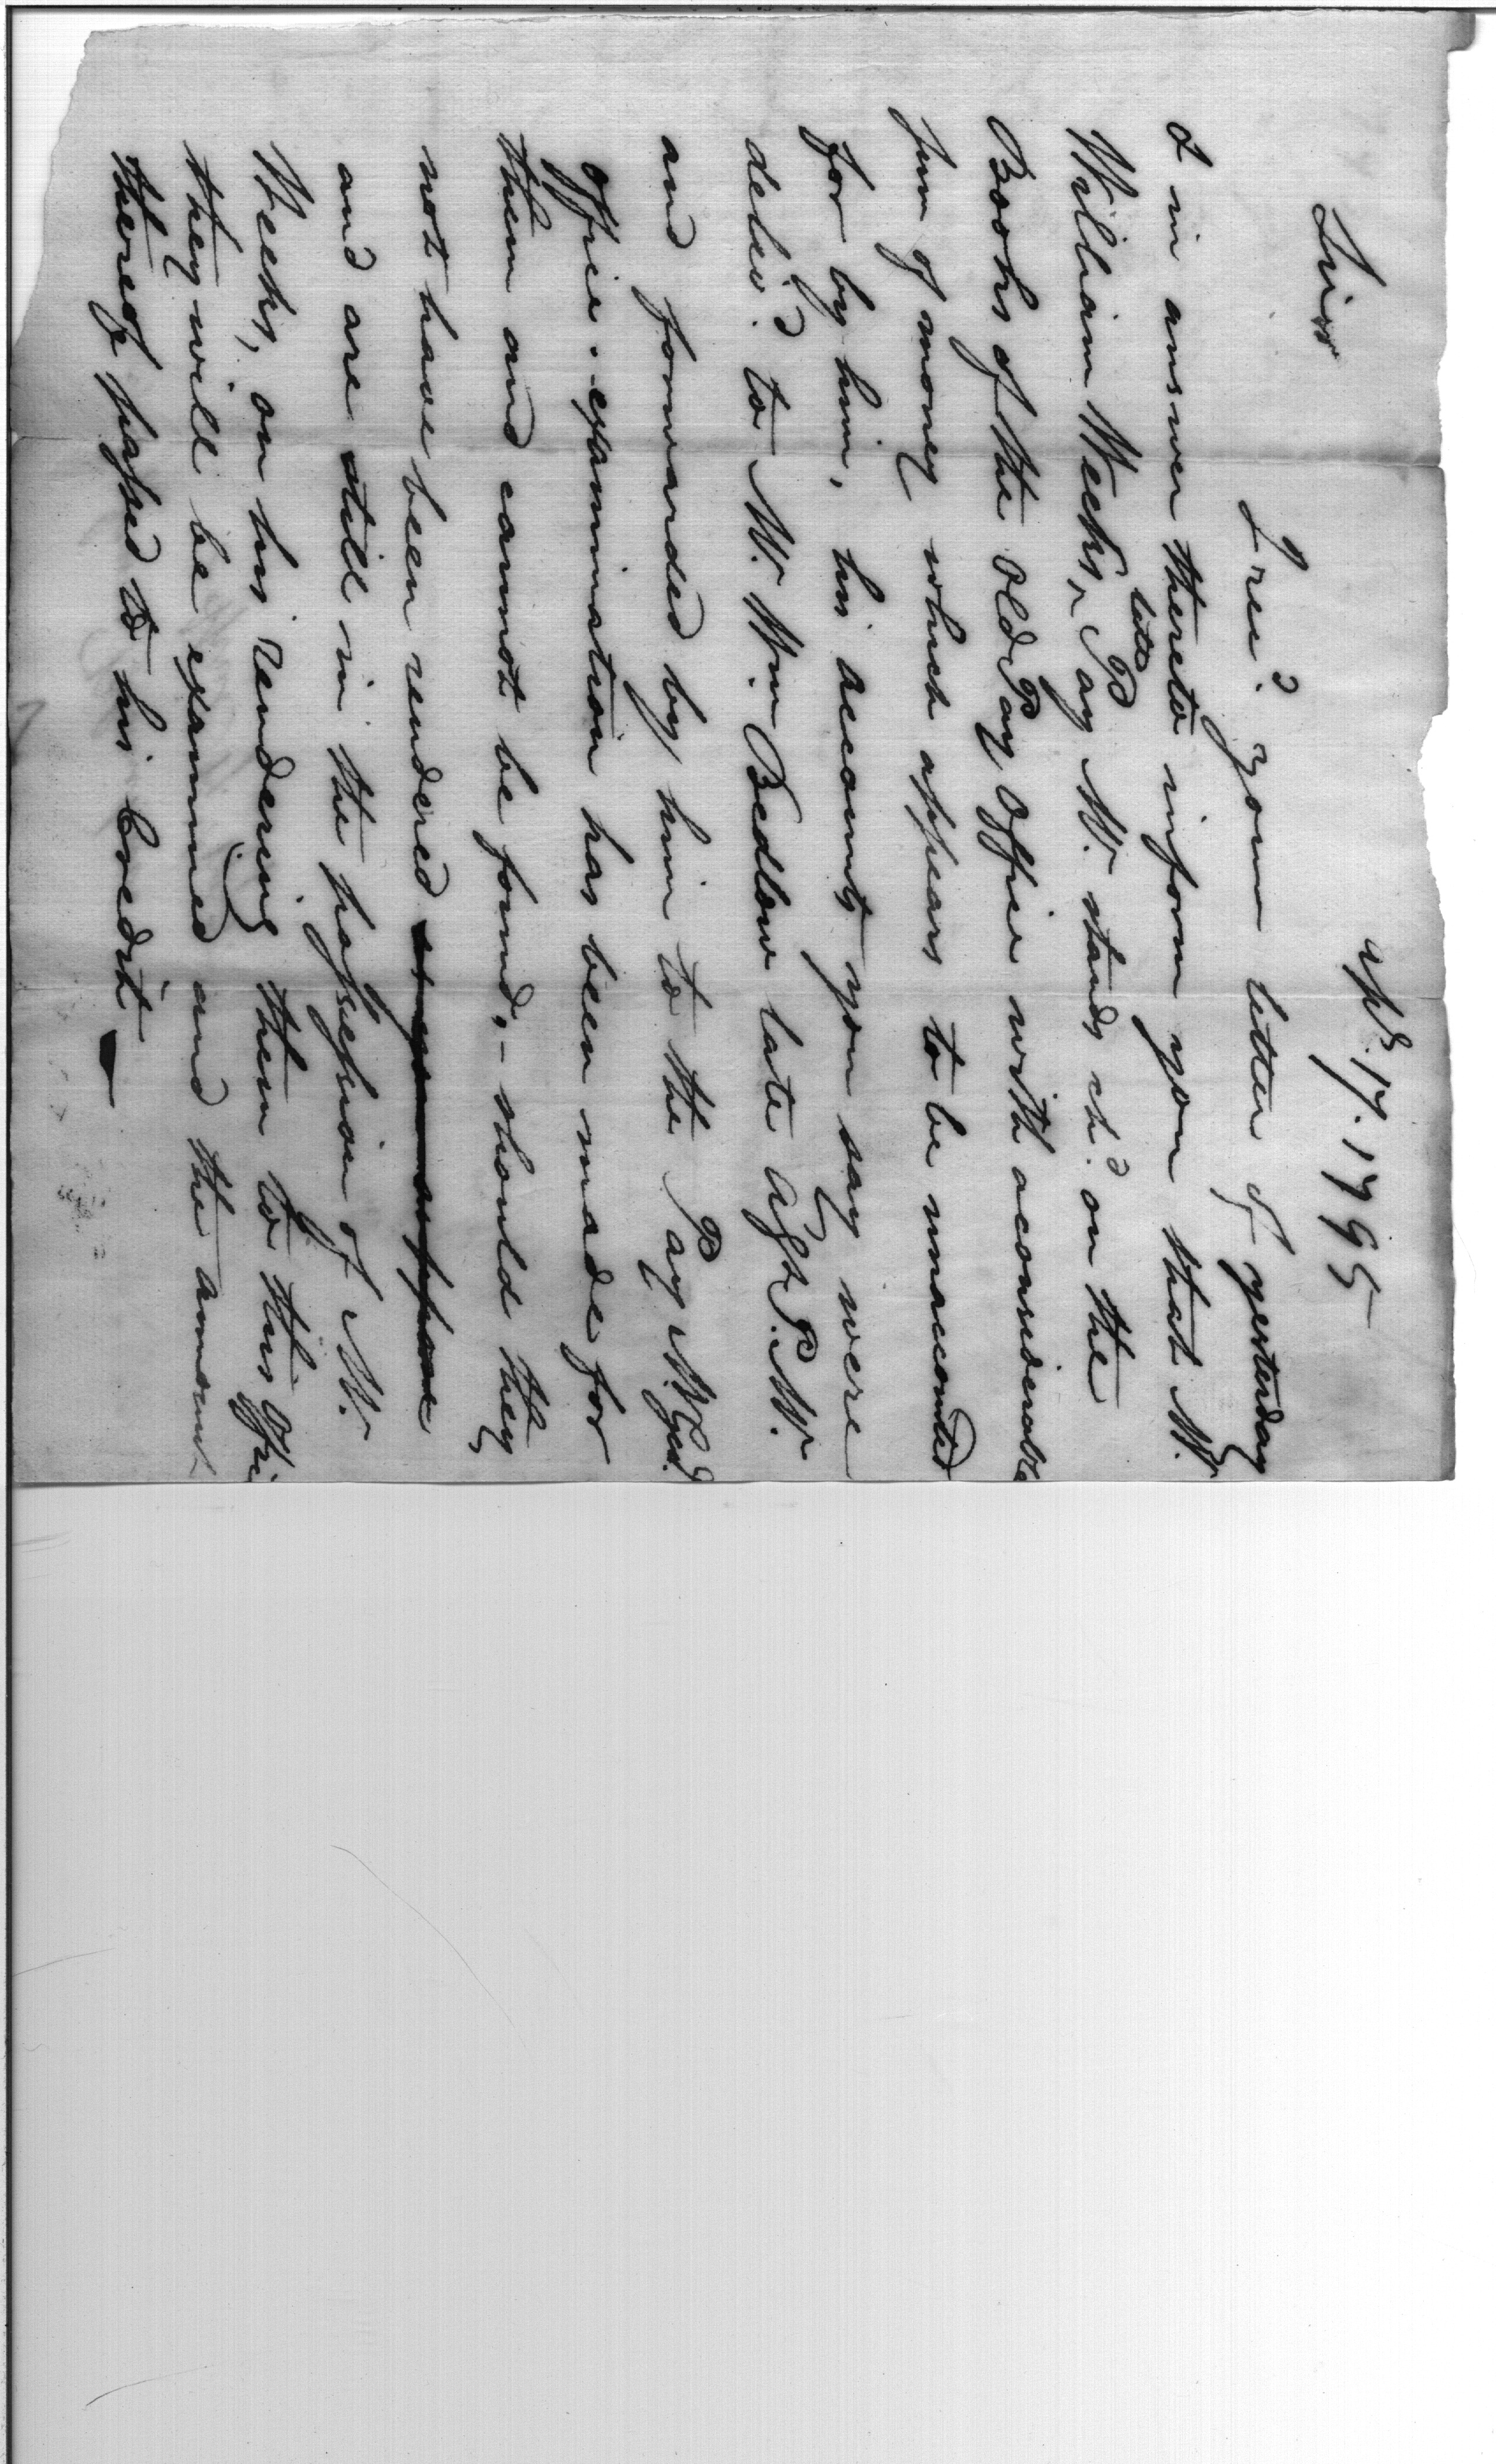 Apl. 17. 1795
Sir
I recd. your letter of yesterday
& in answer thereto inform you that Mr.
William Weeks, late Pay Mr. stands chd. on the
Books of the old Pay Office with a considerable
sum of money which appears to be unaccounted
for by him, his accounts you say were
delivd. to Mr. Wm. Bedlow late Asst. P. Mr.
and forwarded by him to the Pay M. Genl.
office. examination has been made for
them and cannot be found, - should they
not have been rendered
and are still in the possession of Mr.
Weeks, on his rendering them to this Office
they will be examined and the amount
thereof passed to his Credit —